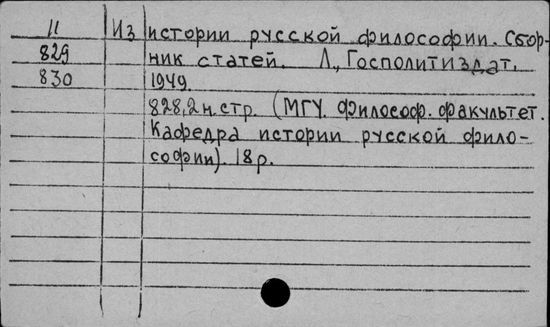 11 Из истории русской философии. Сбор-
829 ник статей. Л., Госполитиздат,
830 1949.
828,2 н. стр. (МГУ. Философ. факультет.
Кафедра истории русской фило-
софии). 18 р.